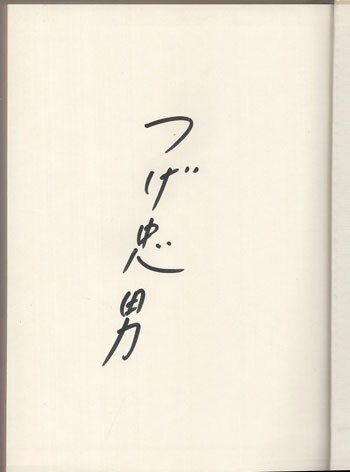 つげ忠男